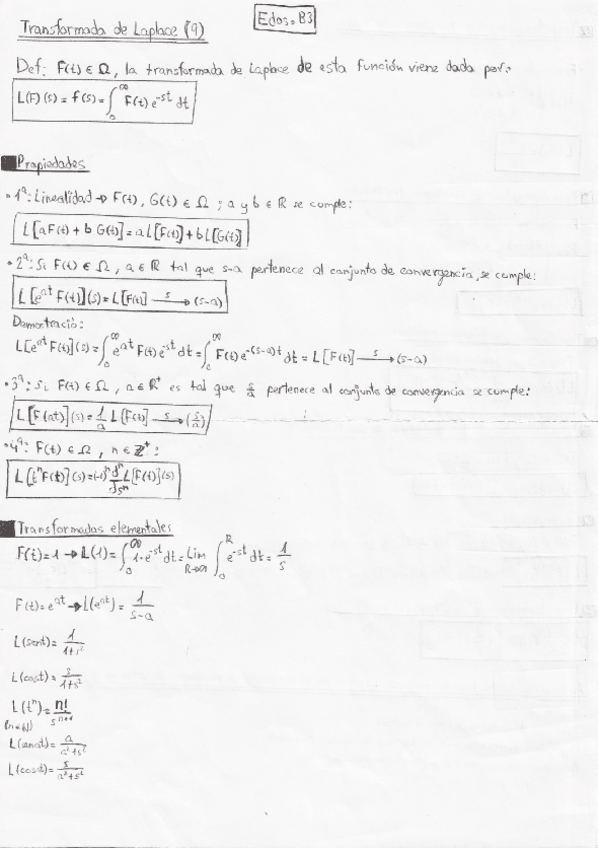 Edos. B3
Transformada de Laplace (9)
Def: F(t) ∈ Ω, la transformada de Laplace de esta función viene dada por:
L(F)(s) = f(s) = ∫₀^∞ F(t) e^{-st} dt
Propiedades
• 1ª: Linealidad → F(t), G(t) ∈ Ω ; a y b ∈ R se cumple:
L[aF(t) + b G(t)] = a L[F(t)] + b L[G(t)]
• 2ª: Si F(t) ∈ Ω, a ∈ R tal que s-a pertenece al conjunto de convergencia, se cumple:
L[e^{at} F(t)](s) = L[F(t)] —s→ (s-a)
Demostració:
L[e^{at} F(t)](s) = ∫₀^∞ e^{at} F(t) e^{-st} dt = ∫₀^∞ F(t) e^{-(s-a)t} dt = L[F(t)] —s→ (s-a)
• 3ª: Si F(t) ∈ Ω, a ∈ R⁺ es tal que s/a pertenece al conjunto de convergencia se cumple:
L[F(at)](s) = 1/a L[F(t)] —s→ (s/a)
• 4ª: F(t) ∈ Ω, n ∈ Z⁺:
L[tⁿF(t)](s) = (-1)ⁿ dⁿ/dsⁿ L[F(t)](s)
Transformadas elementales
F(t) = 1 → L(1) = ∫₀^∞ 1·e^{-st} dt = Lim R→∞ ∫₀^R e^{-st} dt = 1/s
F(t) = e^{at} → L(e^{at}) = 1/(s-a)
L(sent) = 1/(1+s²)
L(cost) = s/(1+s²)
L(tⁿ) = n!/s^{n+1}
L(senat) = a/(a²+s²)
L(cosat) = s/(a²+s²)